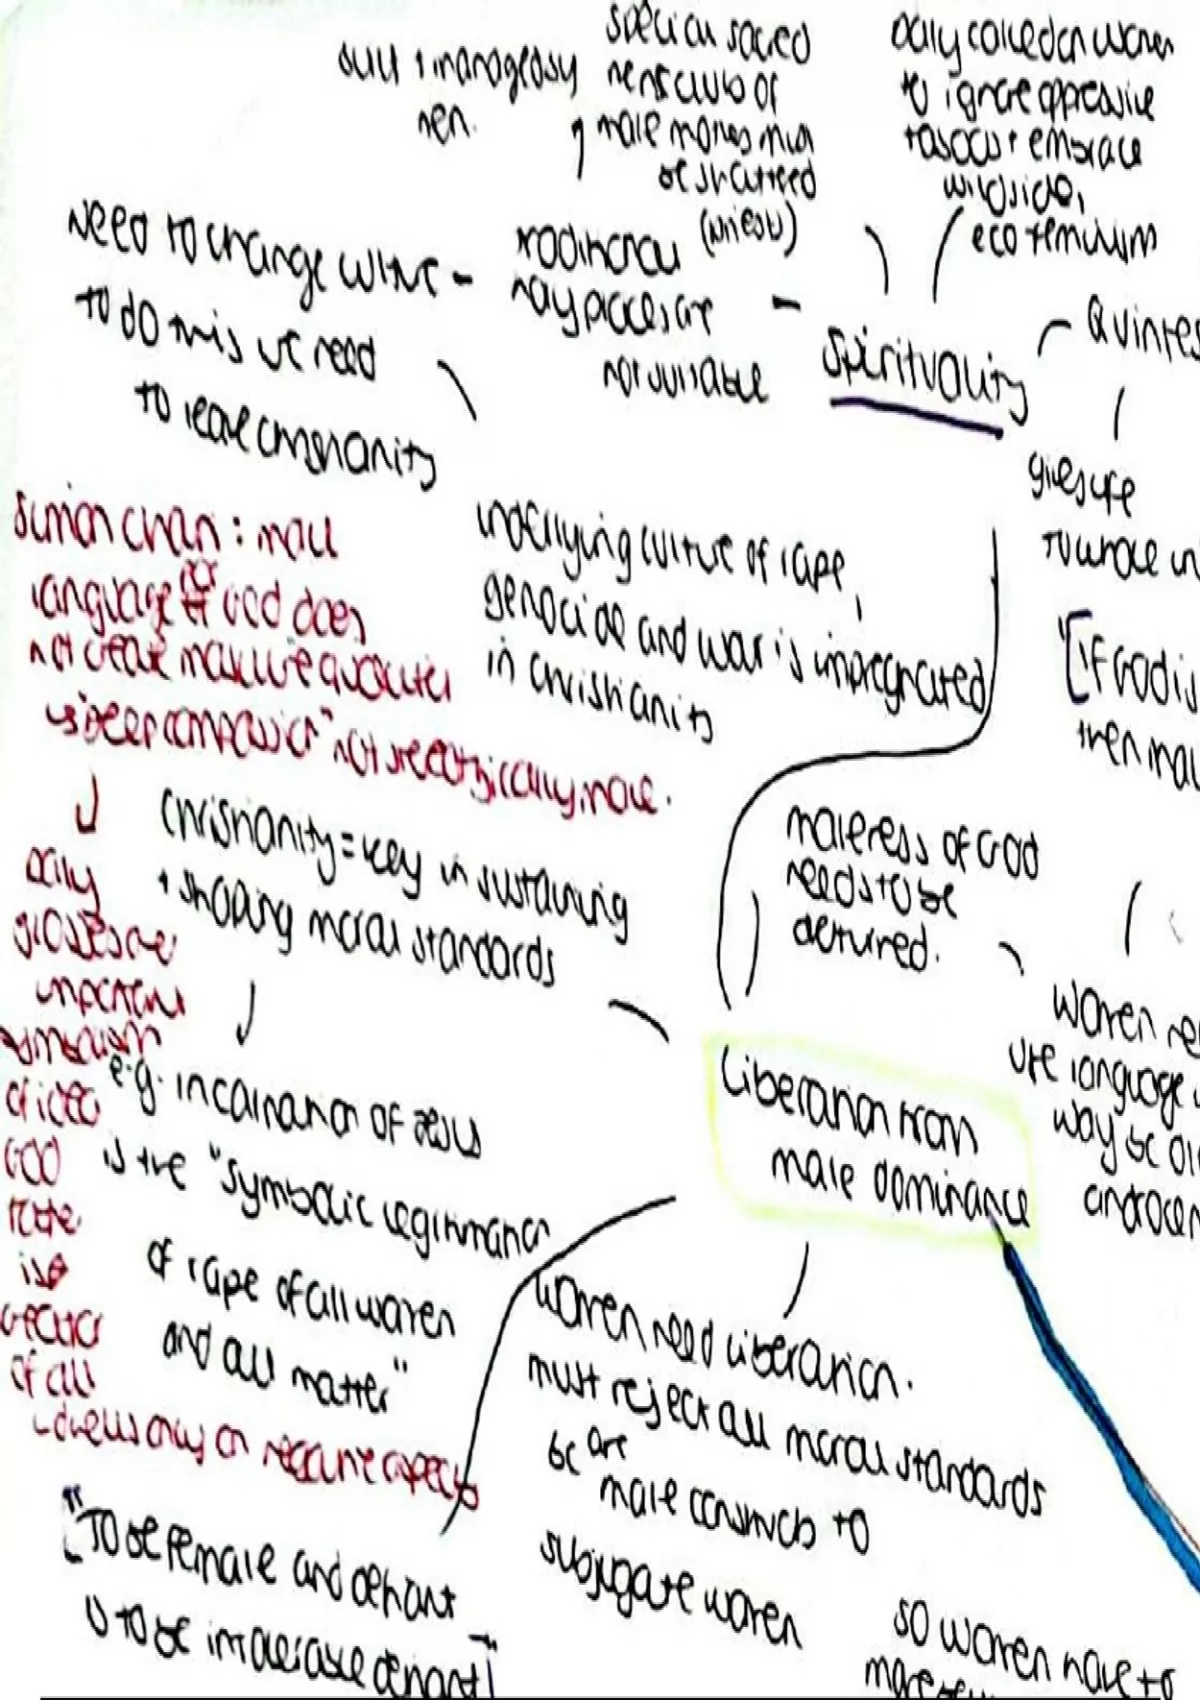 built & managed by
men.
special sacred
mens club of
male monks must
be shattered
(Daly called on women
to ignore oppressive
taboos + embrace
wild side,
eco feminism
Need to change culture -
to do this we need
to leave christianity
traditional
holy places are
not suitable
spirituality
gives life
to whole
[If God is
then mal
simon chan: male
language for God does
not mean masculine qualities
not specifically male.
underlying culture of rape,
genocide and war is impregnated
in christianity
christianity = key in sustaining
+ shaping moral standards
e.g. incarnation of Jesus
is the "symbolic legitimation
of rape of all women
and all matter"
Daly
glosses over
important
symbolism
of idea
God
father
is a
creator
of all
- dwells only on negative aspects
maleness of God
needs to be
Liberation from
male dominance
women
use language
way bc
women need liberation.
must reject all moral standards
bc are
male constructs to
subjugate women
["To be female and defiant
is to be intolerable defiant"]
so women have to